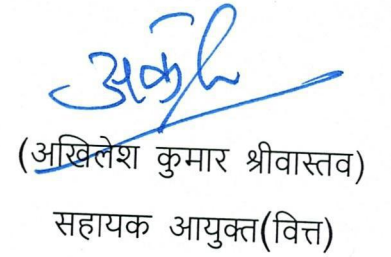 (अखिलेश कुमार श्रीवास्तव)
सहायक आयुक्त(वित्त)